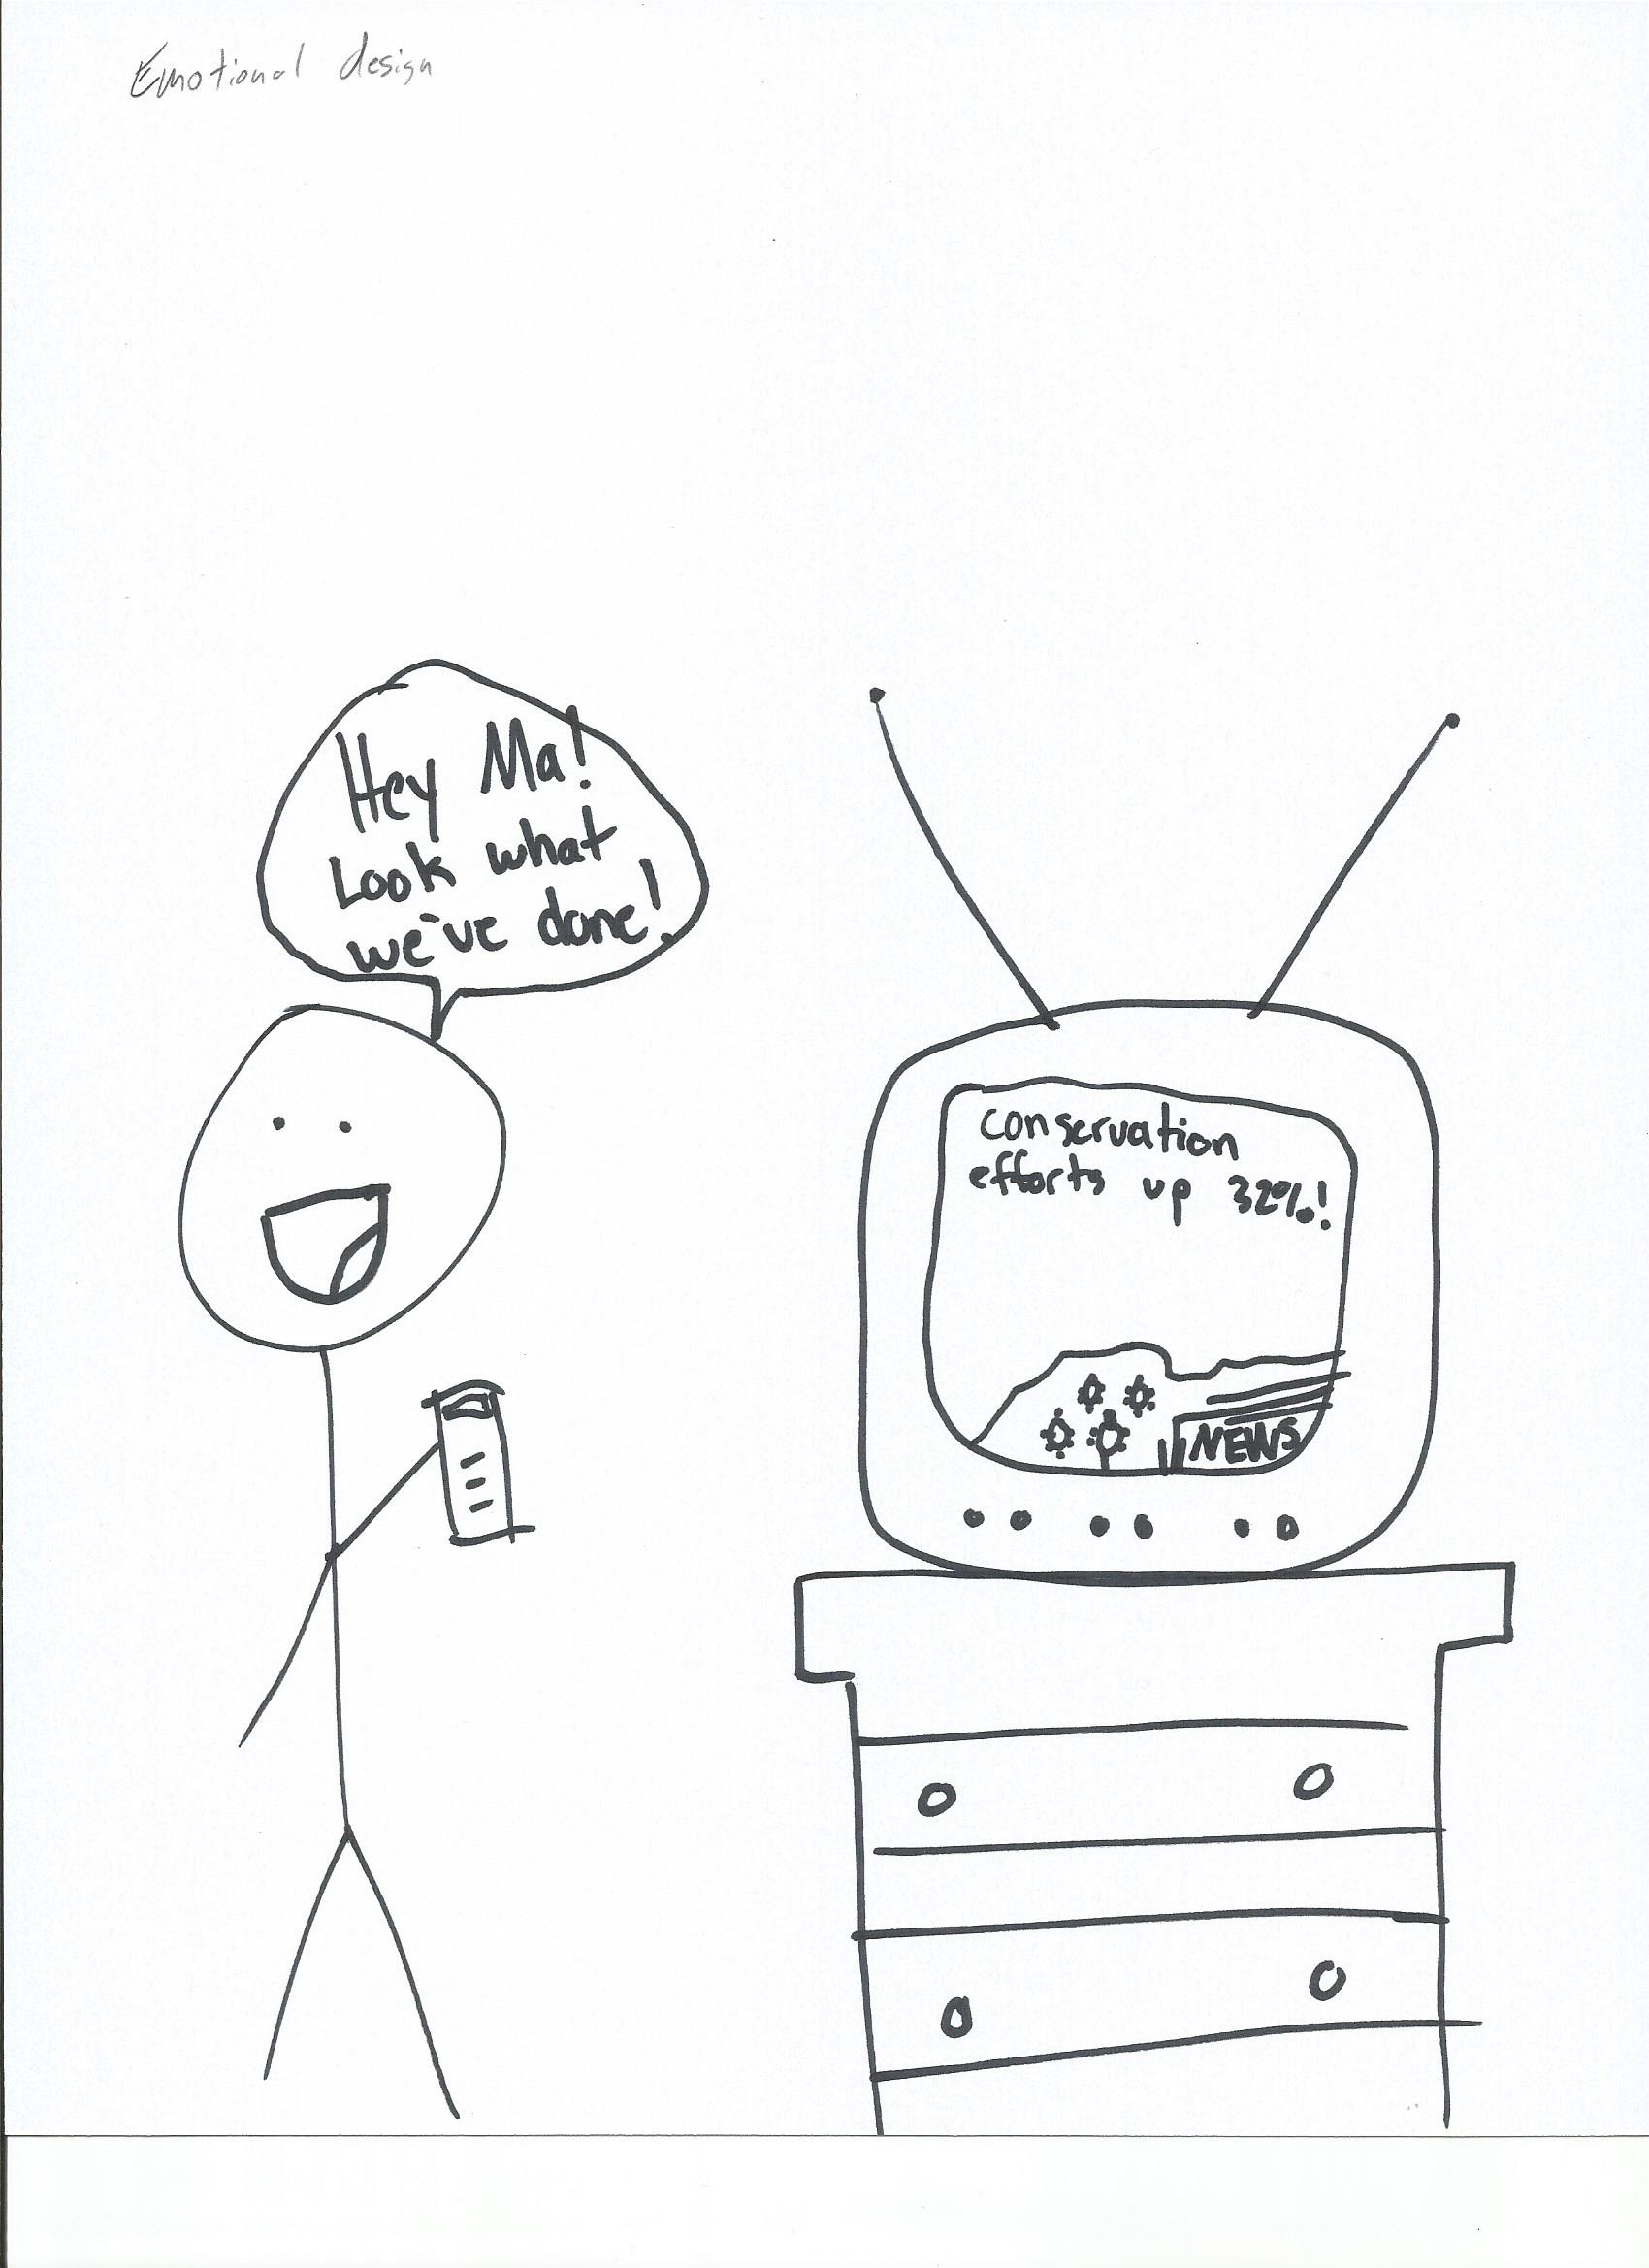 Emotional design
Hey Ma!
Look what
we've done!
conservation
efforts up 32%!
NEWS